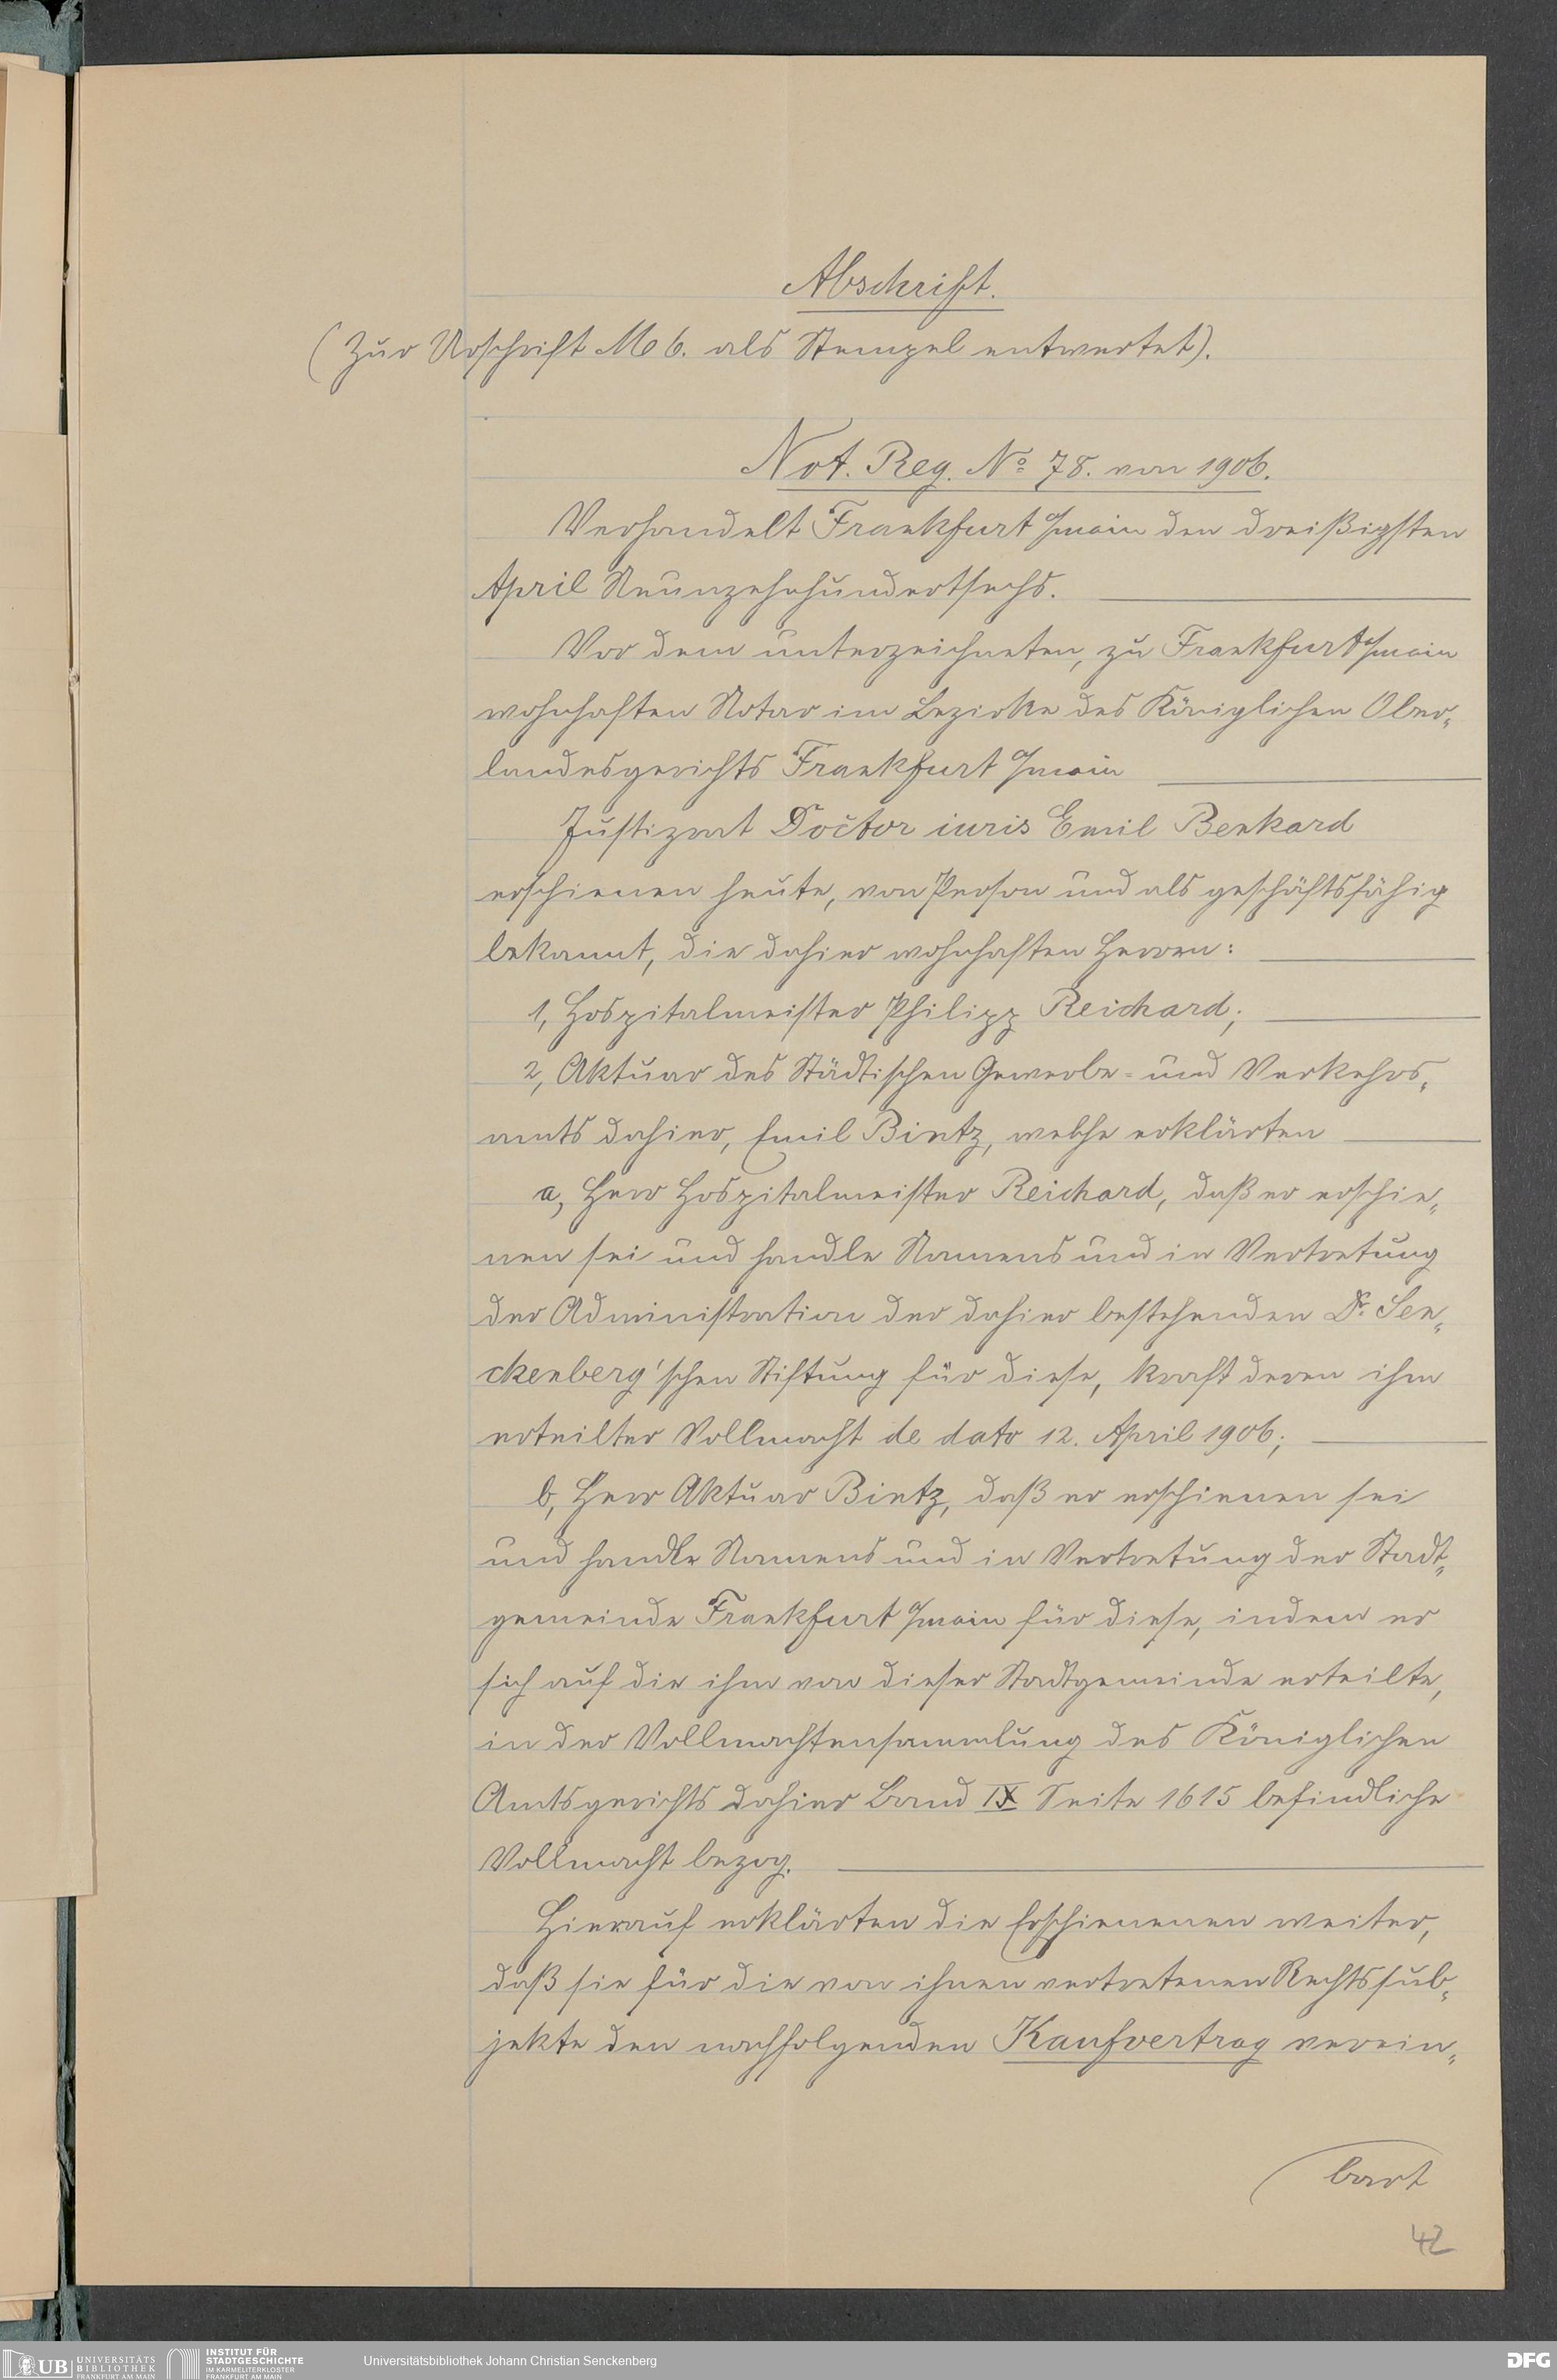 Abschrift.
(Zur Urschrift M 6. als Stempel entwertet).
Not. Reg. No 78. von 1906.
Verhandelt Frankfurt a/main den dreißigsten
April Neunzehnhundertsechs.
Vor dem unterzeichneten, zu Frankfurt a/main
wohnhaften Notar im Bezirke des Königlichen Ober-
landesgerichts Frankfurt a/main
Justizrat Doctor iuris Emil Benkard
erschienen heute, von Person und als geschäftsfähig
bekannt, die dahier wohnhaften Herren:
1, Hospitalmeister Philipp Reichard;
2, Aktuar des Städtischen Gewerbe- und Verkehrs-
amts dahier, Emil Bintz, welche erklärten
a, Herr Hospitalmeister Reichard, daß er erschie-
nen sei und handle Namens und in Vertretung
der Administration der dahier bestehenden Dr. Sen-
ckenberg'schen Stiftung für diese, kraft deren ihm
erteilter Vollmacht de dato 12. April 1906;
b, Herr Aktuar Bintz, daß er erschienen sei
und handle Namens und in Vertretung der Stadt-
gemeinde Frankfurt a/main für diese, indem er
sich auf die ihm von dieser Stadtgemeinde erteilte,
in der Vollmachtensammlung des Königlichen
Amtsgerichts dahier Band IX Seite 1615 befindliche
Vollmacht bezog.
Hierauf erklärten die Erschienenen weiter,
daß sie für die von ihnen vertretenen Rechtssub-
jekte den nachfolgenden Kaufvertrag verein-
bart
42
UB UNIVERSITÄTS
BIBLIOTHEK
FRANKFURT AM MAIN
INSTITUT FÜR
STADTGESCHICHTE
IM KARMELITERKLOSTER
FRANKFURT AM MAIN
Universitätsbibliothek Johann Christian Senckenberg
DFG